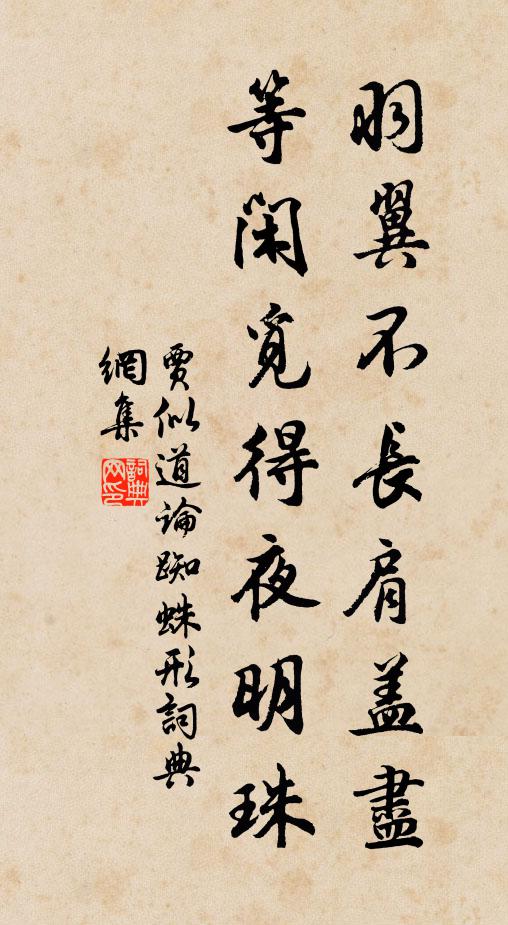 羽翼不長肩盖盡
等閑覓得夜明珠
賈似道論踟蛛形詞典
網集
詞典网印